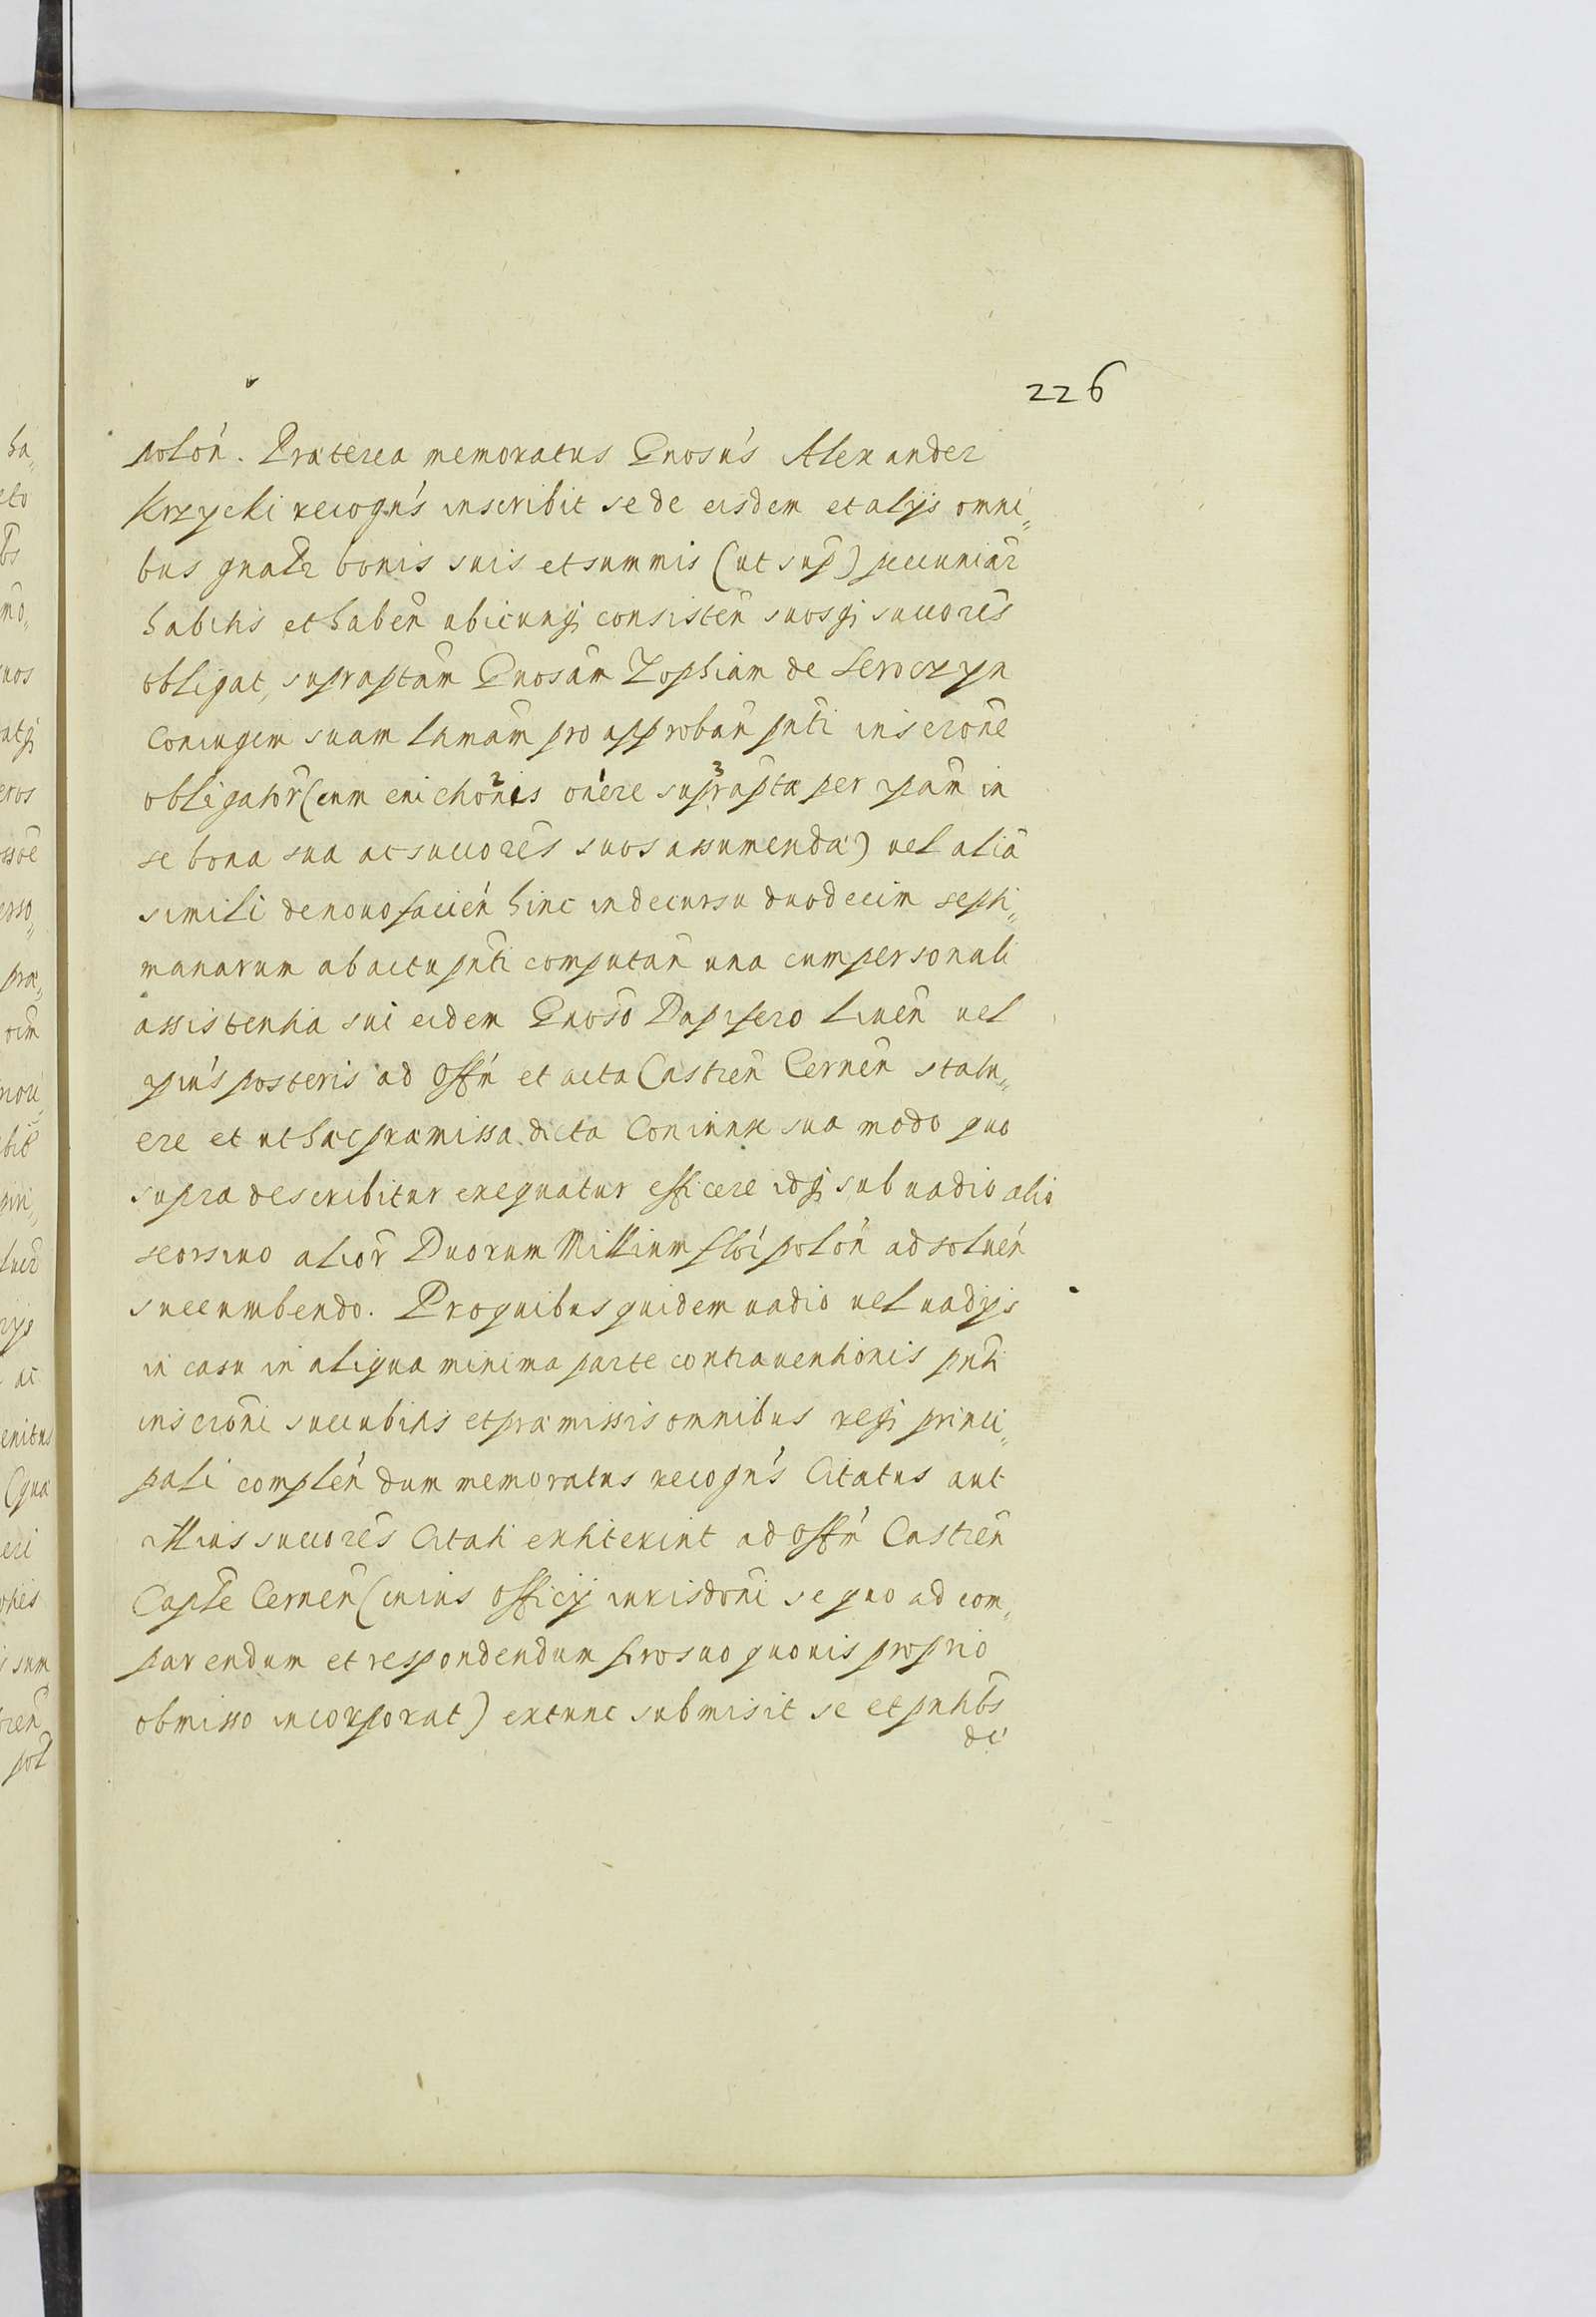 226
polon̄. Præterea memoratus Gnosús Alexander
Krzycki recogńs inscribit se de eisdem et alijs omni„
bus gnalr bonis suis et summis (ut sup) pecuniar̄
habitis et haben̄ ubicunq; consisten̄ suosq; succores̄
obligat, supraptam̄ Gnosam̄ Zophiam de Seroczyn
Coniugem suam Itmam̄ pro approban̄ pnti inscrone̅
obligator̄ (cum euictionis² onere¹ suprapta³ per ipam̄ in
se bona sua ac succores̄ suos assumenda) uel alia
simili de nouo facień hinc in decursu duodecim septi„
manarum ab actu pnti computan̄ una cum personali
assistentia sui eidem Gnoso̅ Dapifero Liuen̄ uel
ipiús posteris ad Offm̄ et acta Castren̄ Cernen̄ statu„
ere et ut hæc præmissa dicta Coniunx sua modo quo
supra describitur exequatur efficere idq; sub uadio alio
seorsiuo alior̄ Duorum Millium floŕ polon̄ ad soluéń
succumbendo. Pro quibus quidem uadio uel uadijs
in casu in aliqua minima parte contrauentionis pnti
inscroni̅ succubitis et præmissis omnibus reẛ princi„
pali complén dum memoratus recogńs Citatus aut
illius succores̄ Citati extiterint ad Offm̄ Castren̄
Capte̅ Cernen̄ (cuius Officij iurisdoni̅ se quo ad com„
parendum et respondendum foro suo quouis proprio
obmisso incorporat) extunc submisit se et pntibs̄
dé